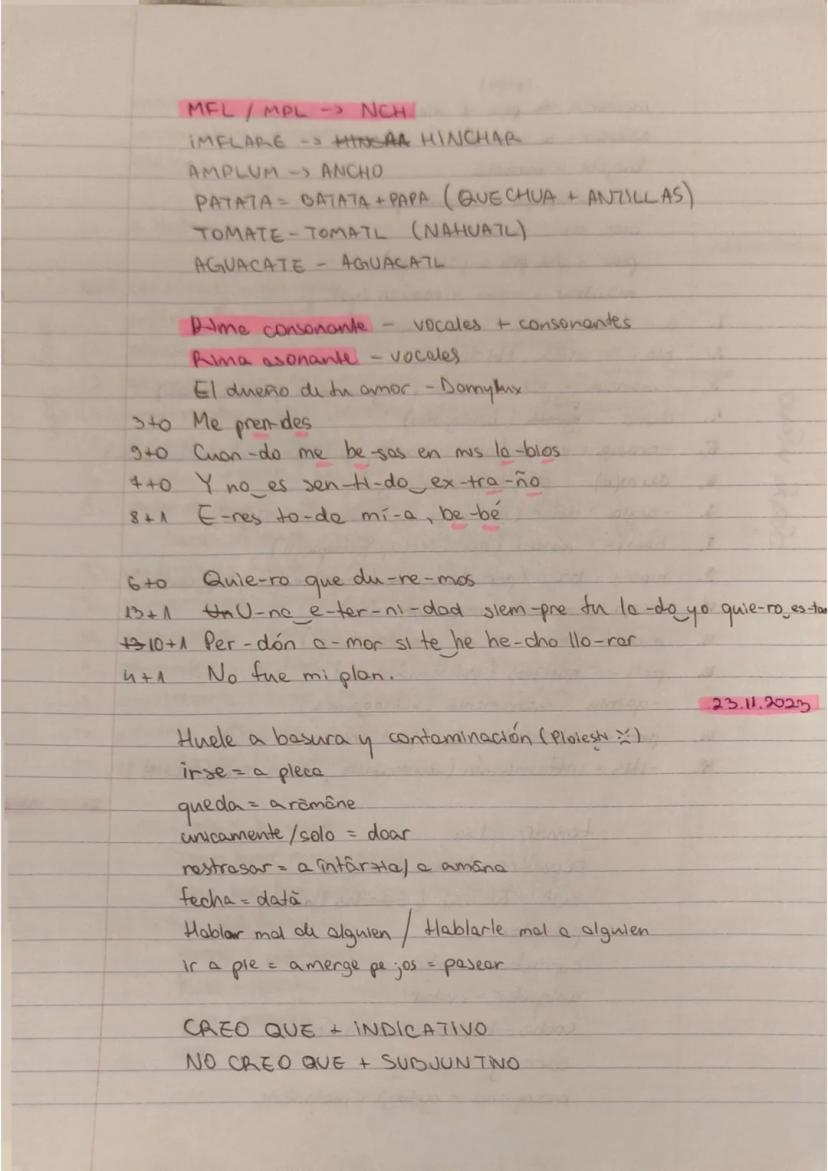 MFL / MPL -> NCH
iMFLARE -> HINCHAR
AMPLUM -> ANCHO
PATATA = BATATA + PAPA (QUECHUA + ANTILLAS)
TOMATE - TOMATL (NAHUATL)
AGUACATE - AGUACATL
Rima consonante - vocales + consonantes
Rima asonante - vocales
El dueño de tu amor - Dannylux
3+0 Me pren-des
9+0 Cuan-do me be-sas en mis la-bios
7+0 Y no_es sen-ti-do_ex-tra-ño
8+1 E-res to-da mí-a, be-bé
6+0 Quie-ro que du-re-mos
13+1 U-na_e-ter-ni-dad siem-pre tu la-do_yo quie-ro_es-tar
10+1 Per-dón a-mor si te_he he-cho llo-rar
4+1 No fue mi plan.
23.11.2023
Huele a basura y contaminación (Ploiești
irse = a pleca
queda = a rămâne
unicamente/solo = doar
restrasar = a întârzia/ a amâna
fecha = dată
Hablar mal de alguien / Hablarle mal a alguien
ir a pie = a merge pe jos = pasear
CREO QUE + INDICATIVO
NO CREO QUE + SUBJUNTIVO